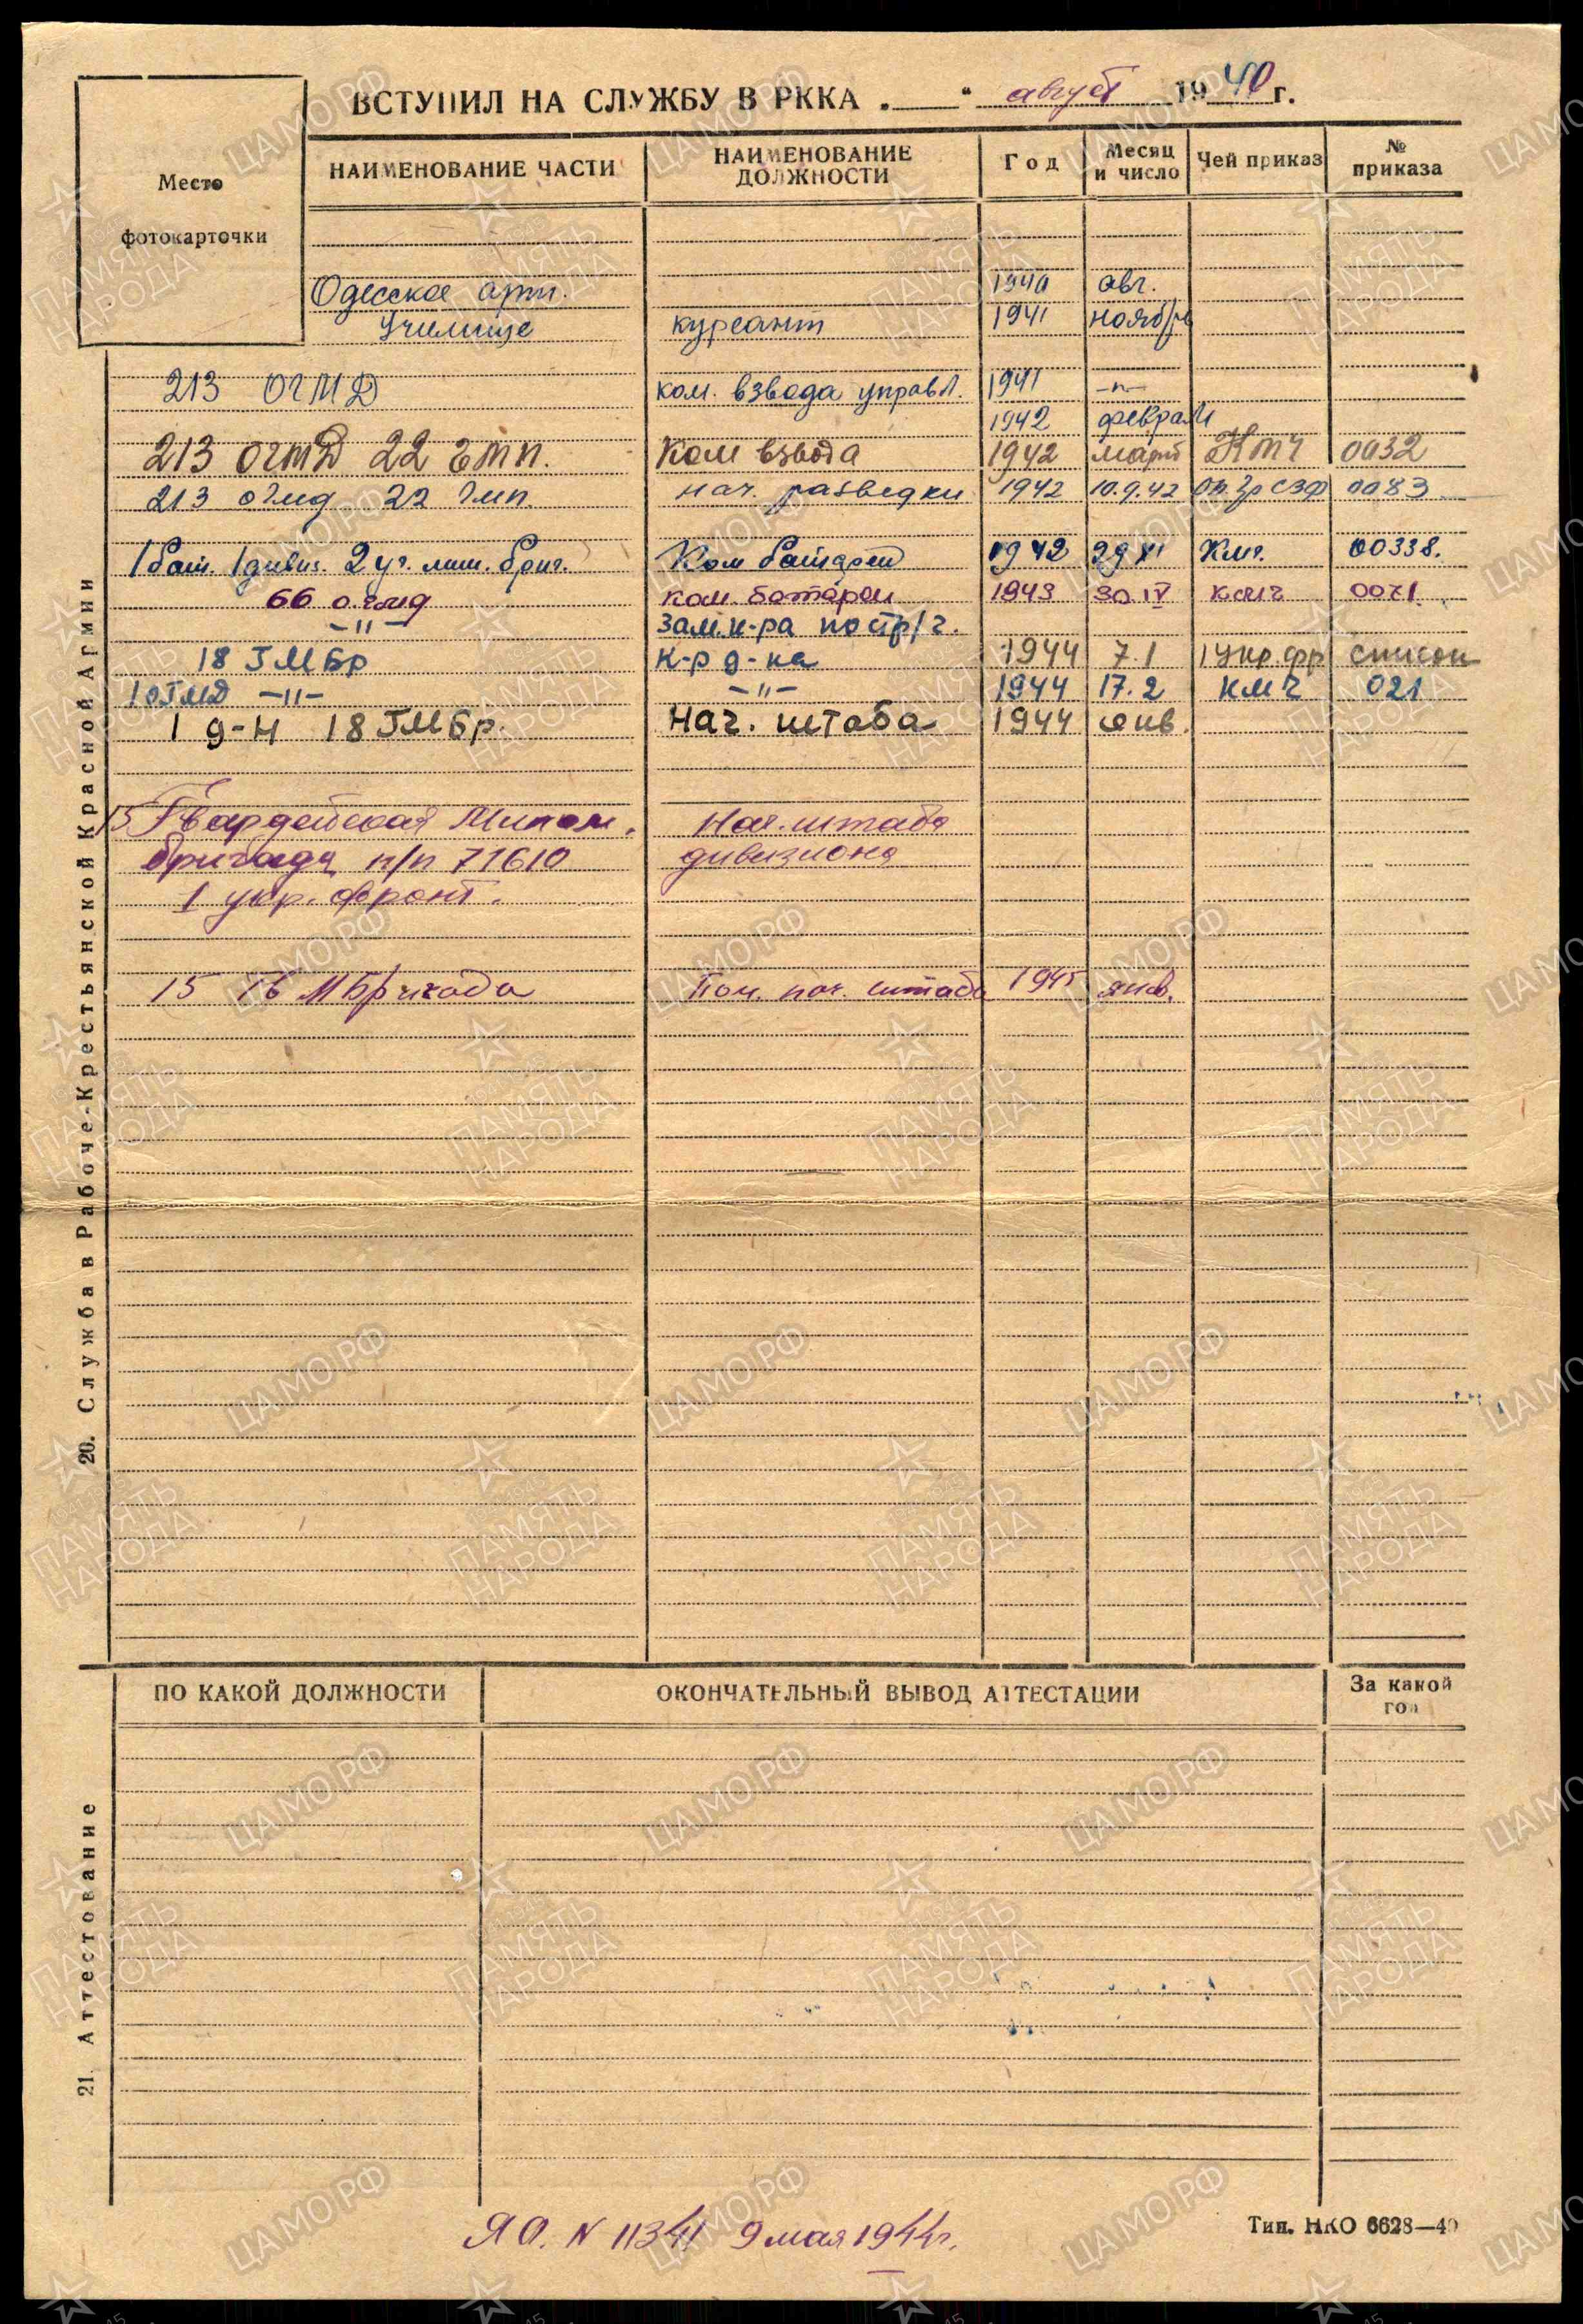 ВСТУПИЛ НА СЛУЖБУ В РККА „ “ август 1940 г.
Место
фотокарточки
НАИМЕНОВАНИЕ ЧАСТИ НАИМЕНОВАНИЕ ДОЛЖНОСТИ Год Месяц и число Чей приказ № приказа
Одесское арт. 1940 авг.
Училище курсант 1941 ноябрь
213 ОГМД ком. взвода управл. 1941 -п-
1942 февраль
213 огмд 22 гмп. Ком взвода 1942 март КМЧ 0032
213 огмд 22 гмп. нач. разведки 1942 10.9.42 Оп. гр СЗФ 0083
1 бат. 1 дивиз. 2 уч. мин. бриг. Ком батареи 1942 29 XI Кмч. 00338.
66 о.гмд ком. батареи 1943 30 IV кмч 0071.
-"- Зам. к-ра по стр/ч.
18 ГМБр к-р д-на 1944 7.1 1 Укр. фр список
1 ОГМД -"- -"- 1944 17.2 КМЧ 021
1 д-н 18 ГМБр. Нач. штаба 1944 янв.
15 Гвардейская Мином. Нач. штаба
бригада п/п 71610 дивизиона
1 укр. фронт.
15 Гв МБригада Пом. нач. штаба 1945 янв.
20. Служба в Рабоче-Крестьянской Красной Армии
ПО КАКОЙ ДОЛЖНОСТИ ОКОНЧАТЕЛЬНЫЙ ВЫВОД АТТЕСТАЦИИ За какой год
21. Аттестование
ЯО. N 11341 9 мая 1944г.
Тип. НКО 6628—40
ЦАМО.РФ
ПАМЯТЬ НАРОДА